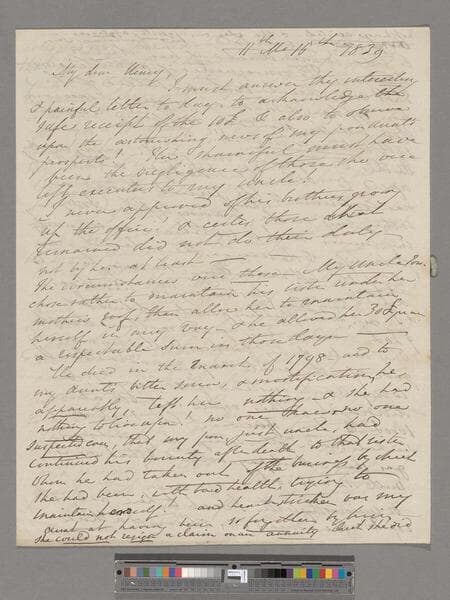 11th Mo 15th 1829
My dear Henry,
I must answer thy interesting
& painful letter to day, to acknowledge the
safe receipt of the & also to
upon the astonishing news of my poor aunt's
prospects! How shameful must have
been the negligence of those who were
left executors to my Uncle!
I never approved of his brothers giving
up the office, & certes those that
remained did not do their duty
not by her at least —
The circumstances were these — My Uncle
chose rather to maintain his sister under her
mothers roof, than allow her to maintain
herself in any way — & he allowed her per an
a respectable sum in those days —
He died in the March of 1798 and to
my aunts bitter sorrow, & mortification, he
apparently, left her nothing — & she had
nothing to live upon! no one then, no one
suspected even, that my poor just uncle, had
continued his bounty after death to that sister
whom he had taken out of the business by which
she had been, with bad health, trying to
maintain herself! and heart stricken was my
aunt at having been so forgotten by him
she could not reject a claim on an annuity which she did